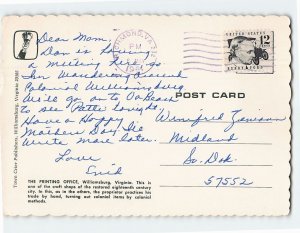 Dear Mom,
Dan is having
a meeting here so
I'm Wandering around
Colonial Williamsburg
We'll go on to Va Beach
to see Patti tonight.
Have a Happy
Mothers Day. Will
write more later.
Love
Enid
POST CARD
Winifred
Midland
So. Dak.
57552
UNITED STATES
12
HENRY FORD
PM
THE PRINTING OFFICE, Williamsburg, Virginia. This is
one of the craft shops of the restored eighteenth century
city. In this, as in the others, the proprietor practices his
trade by hand, turning out colonial items by colonial
methods.
Williamsburg, Virginia 23185